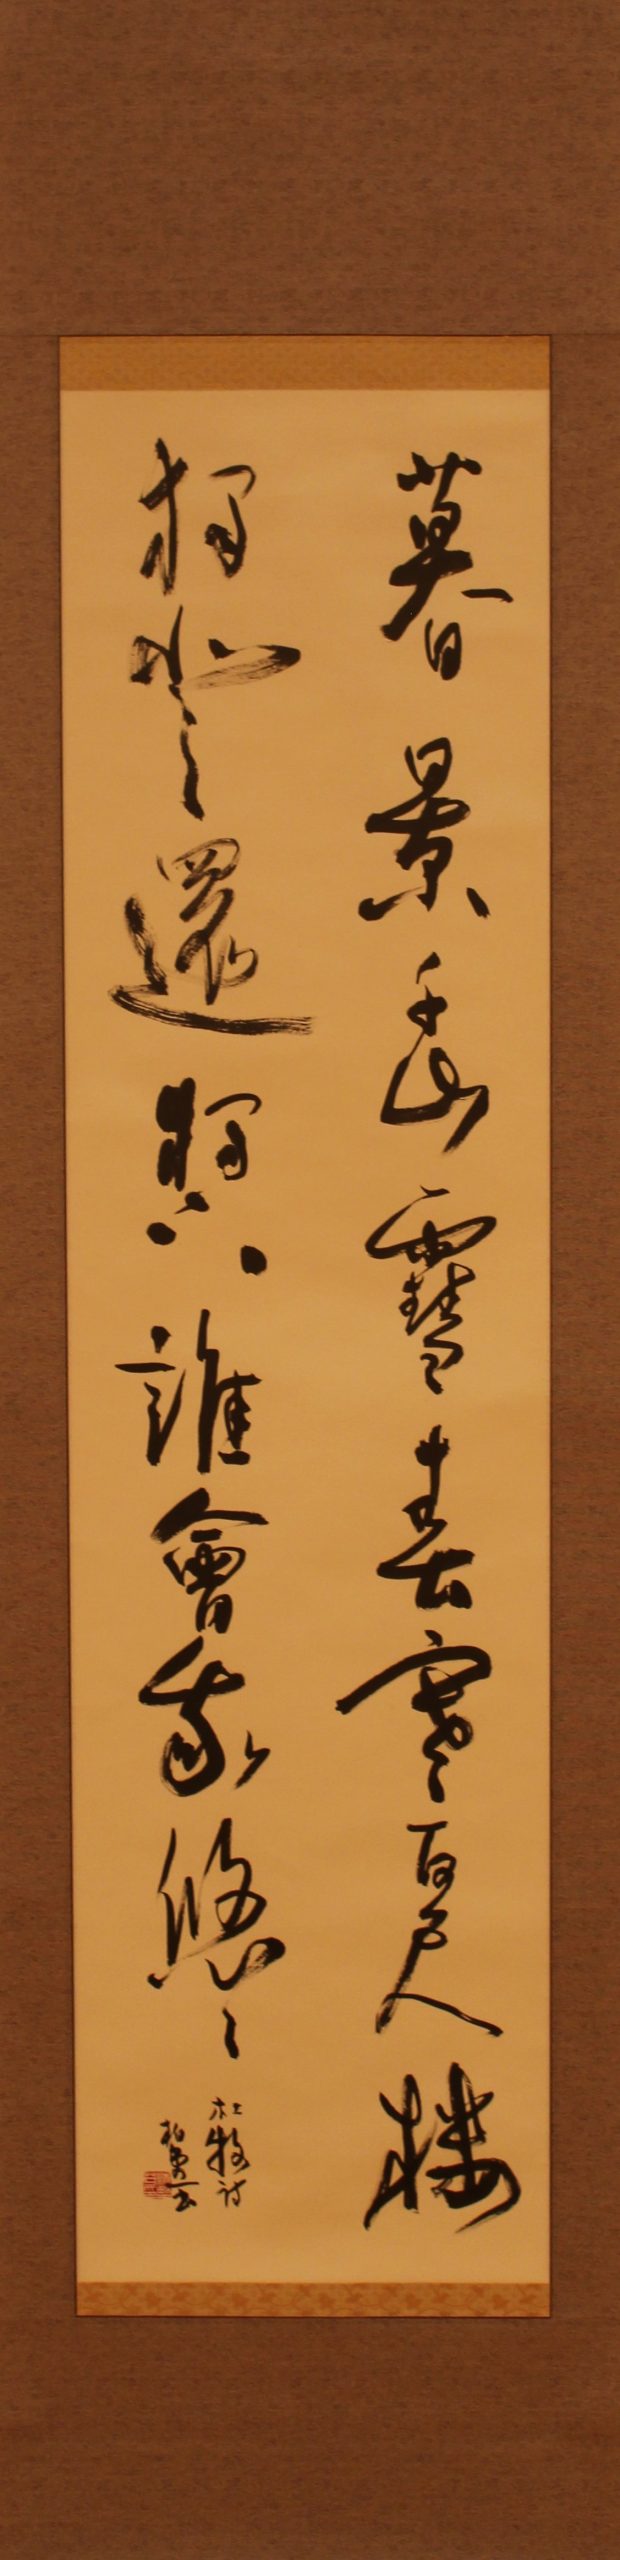 暮景千山雪春寒百尺樓
獨登還獨下誰會我悠〻
杜牧詩